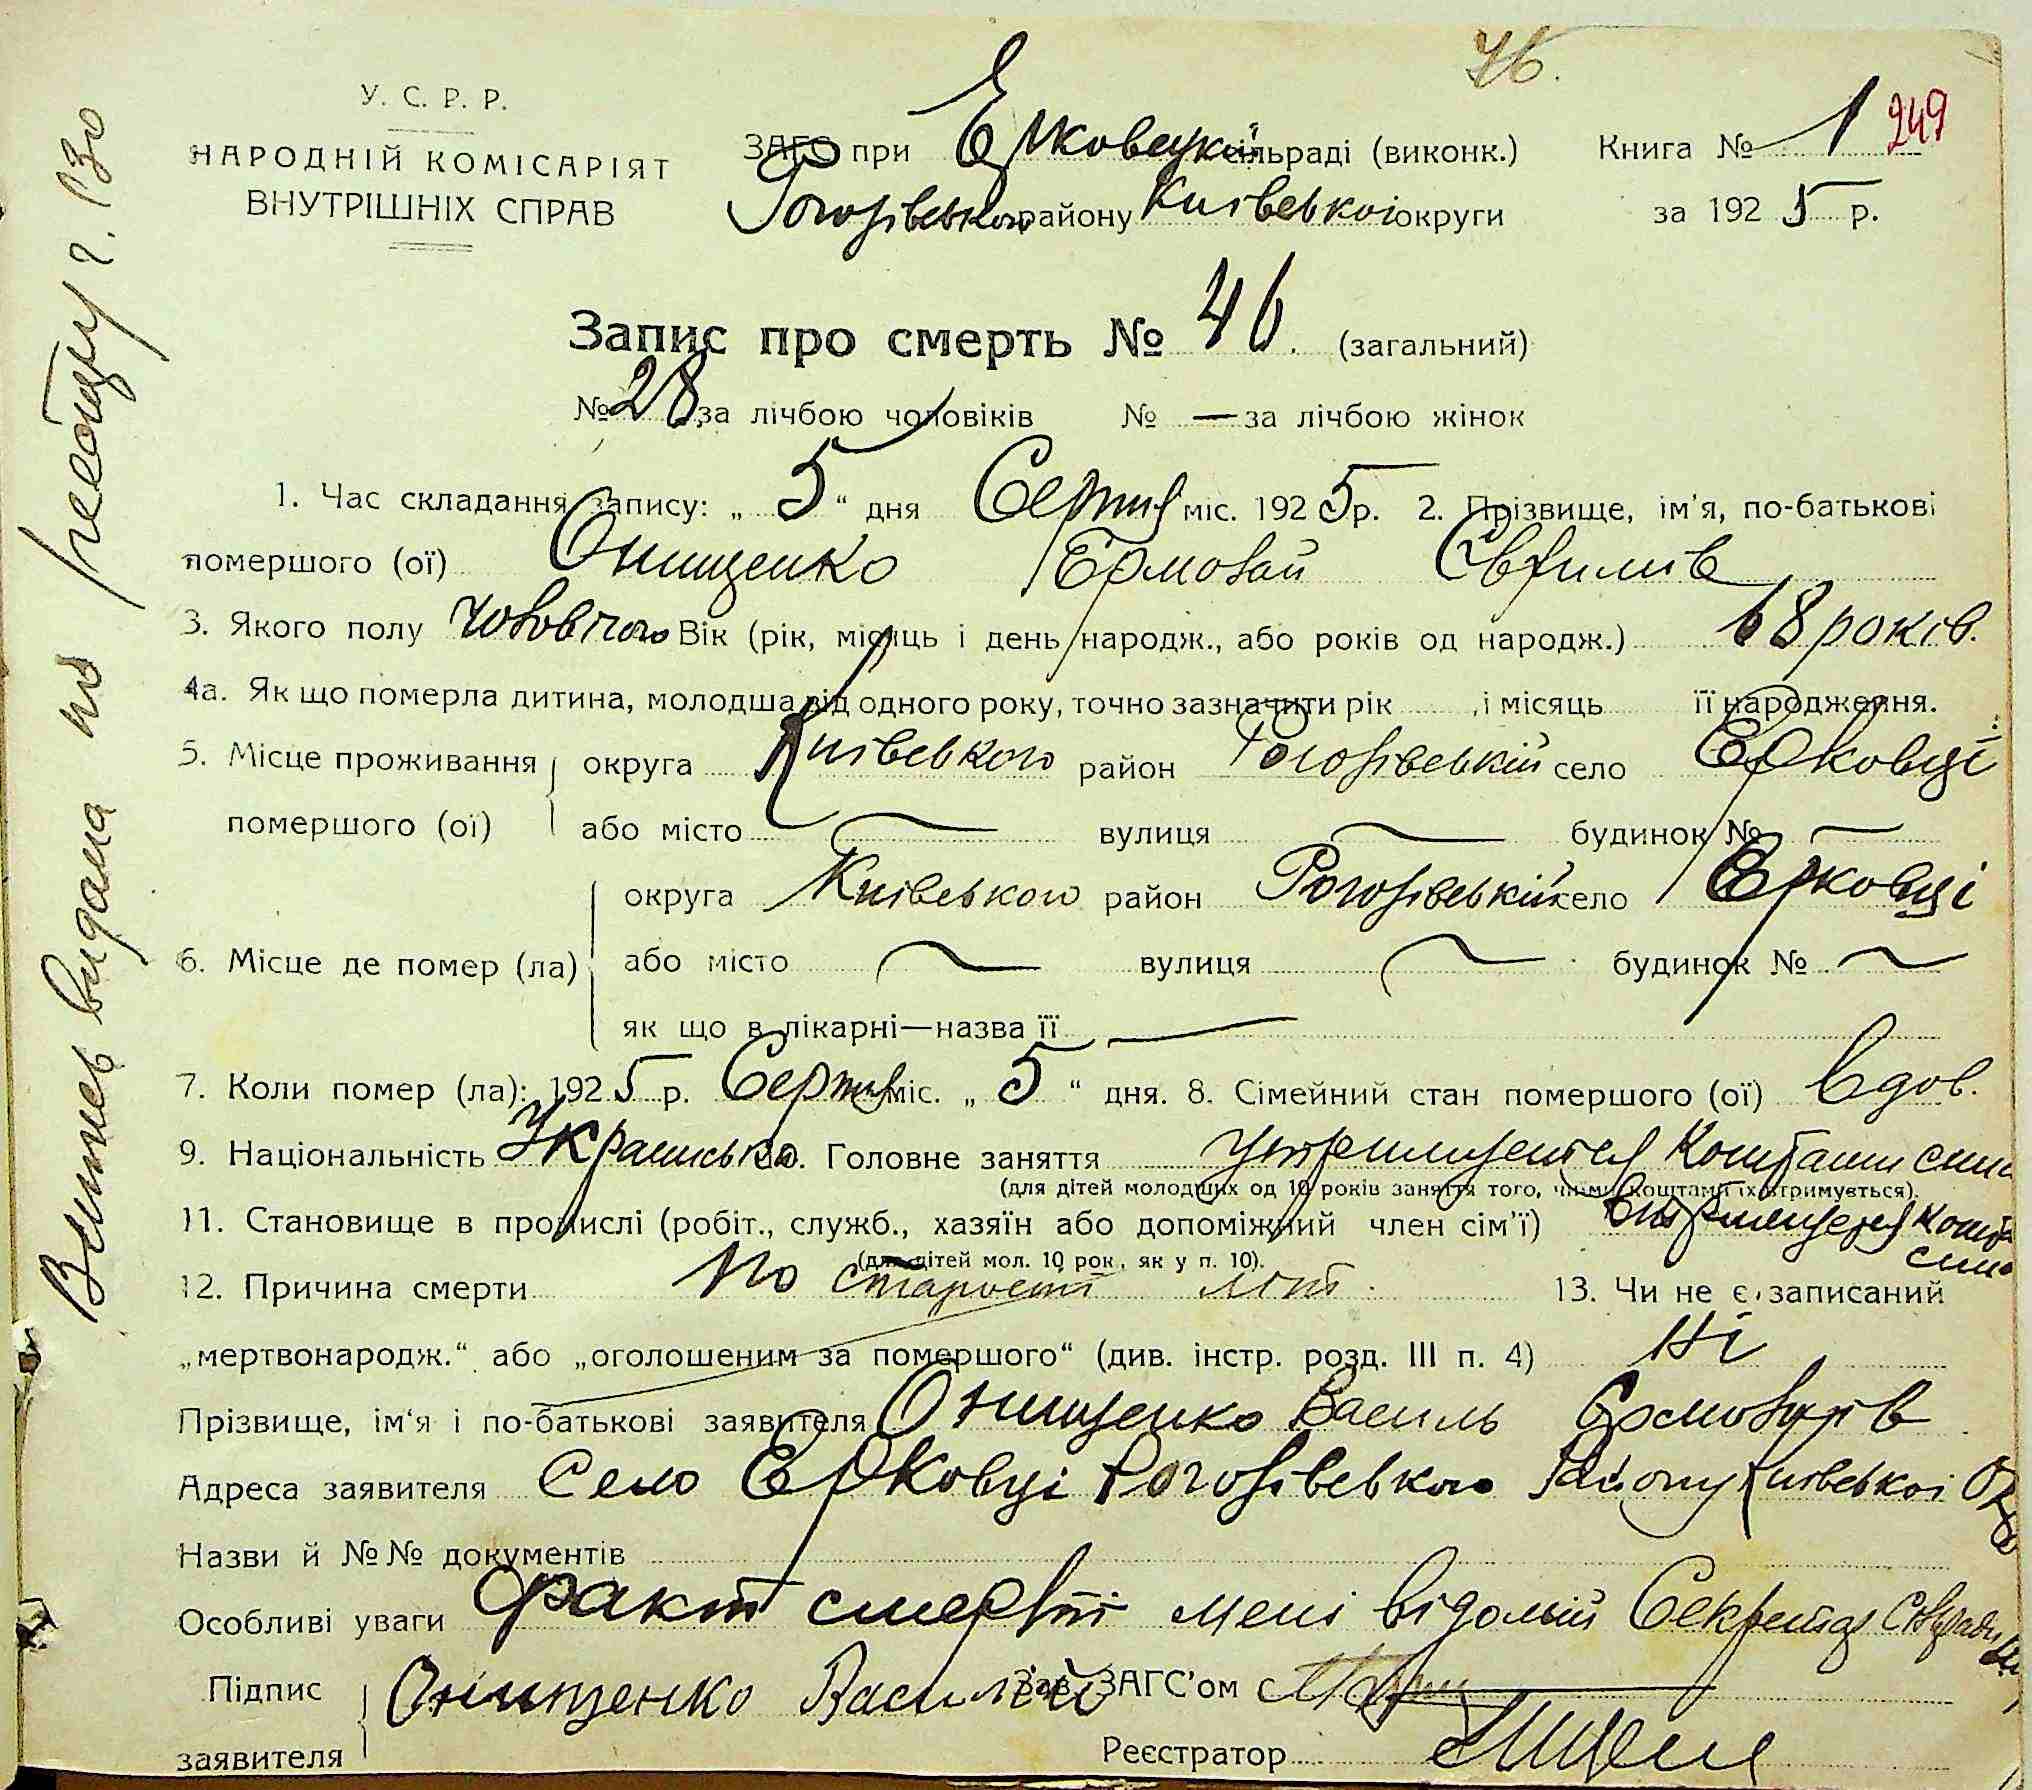 46.
У. С. Р. Р.
НАРОДНІЙ КОМІСАРІЯТ
ВНУТРІШНІХ СПРАВ
ЗАГС при Ерковецькій сільраді (виконк.)
Рогозівського району Київської округи
Книга № 1 249
за 1925 р.
Запис про смерть № 46. (загальний)
№ 28 за лічбою чоловіків № — за лічбою жінок
1. Час складання запису: „ 5 “ дня Серпня міс. 1925 р. 2. Прізвище, ім'я, по-батькові
помершого (ої) Онищенко Ермолай Євфимів
3. Якого полу чоловічого Вік (рік, місяць і день народж., або років од народж.) 68 років.
4а. Як що померла дитина, молодша від одного року, точно зазначити рік , і місяць її народження.
5. Місце проживання округа Київського район Рогозівській село Ерковці
помершого (ої) або місто — вулиця — будинок № —
округа Київського район Рогозівській село Ерковці
6. Місце де помер (ла) або місто — вулиця — будинок № —
як що в лікарні—назва її —
7. Коли помер (ла): 1925 р. Серпня міс. „ 5 “ дня. 8. Сімейний стан помершого (ої) Вдов.
9. Національність Українська 10. Головне заняття утримується коштами сина
(для дітей молодших од 10 років заняття того, чиїми коштами їх утримується).
11. Становище в промислі (робіт., служб., хазяїн або допоміжний член сім'ї) утримується кошт. сина
(для дітей мол. 10 рок., як у п. 10).
12. Причина смерти По старости літ. 13. Чи не є записаний
„мертвонародж.“ або „оголошеним за помершого“ (див. інстр. розд. III п. 4) Ні
Прізвище, ім'я і по-батькові заявителя Онищенко Василь Ермолаїв
Адреса заявителя Село Ерковці Рогозівського Району Київської Окр
Назви й №№ документів
Особливі уваги Факт смерті мені відомий Секретар Сільради
Підпис заявителя Онищенко Василій
Зав. ЗАГС'ом
Реєстратор
Витяг видана по